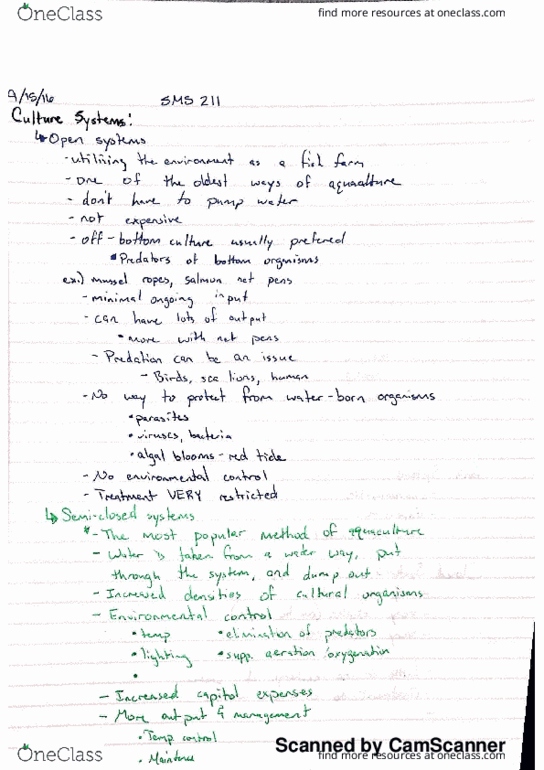 OneClass
find more resources at oneclass.com
9/15/16 SMS 211
Culture Systems:
↳ Open systems
- utilizing the environment as a fish farm
- one of the oldest ways of aquaculture
- don't have to pump water
- not expensive
- off-bottom culture usually preferred
▪ Predators of bottom organisms
ex.) mussel ropes, salmon net pens
- minimal ongoing input
- can have lots of output
• more with net pens
- Predation can be an issue
- Birds, sea lions, human
- No way to protect from water-born organisms
• parasites
• viruses, bacteria
• algal blooms - red tide
- No environmental control
- Treatment VERY restricted
↳ Semi-closed systems
*- The most popular method of aquaculture
- Water is taken from a water way, put
through the system, and dump out
- Increased densities of cultural organisms
- Environmental control
• temp • elimination of predators
• lighting • supp. aeration/oxygenation
•
- Increased capital expenses
- More output & management
• Temp control
•
Scanned by CamScanner
OneClass
find more resources at oneclass.com